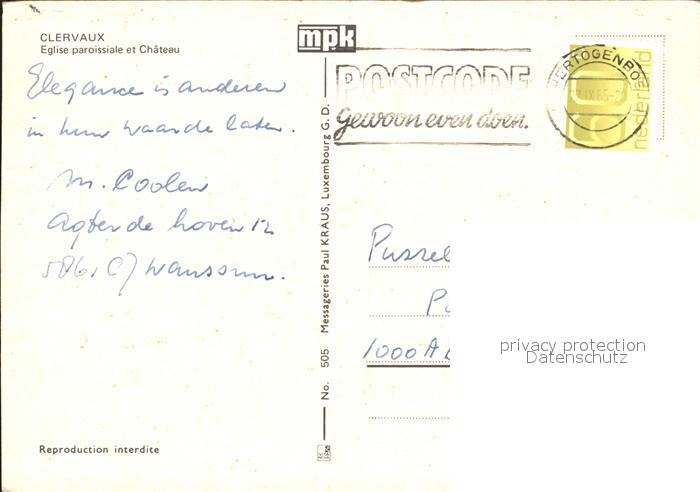 CLERVAUX
Eglise paroissiale et Château
mpk
Elegance is anderen
in hun waarde laten.
M. Coolen
Agter de hoven 12
5861 CJ Wanssum.
Reproduction interdite
No. 505 Messageries Paul KRAUS, Luxembourg G. D.
POSTCODE
Gewoon even doen.
HERTOGENBO
nederland
Puzzel
Po
1000 A
privacy protection
Datenschutz